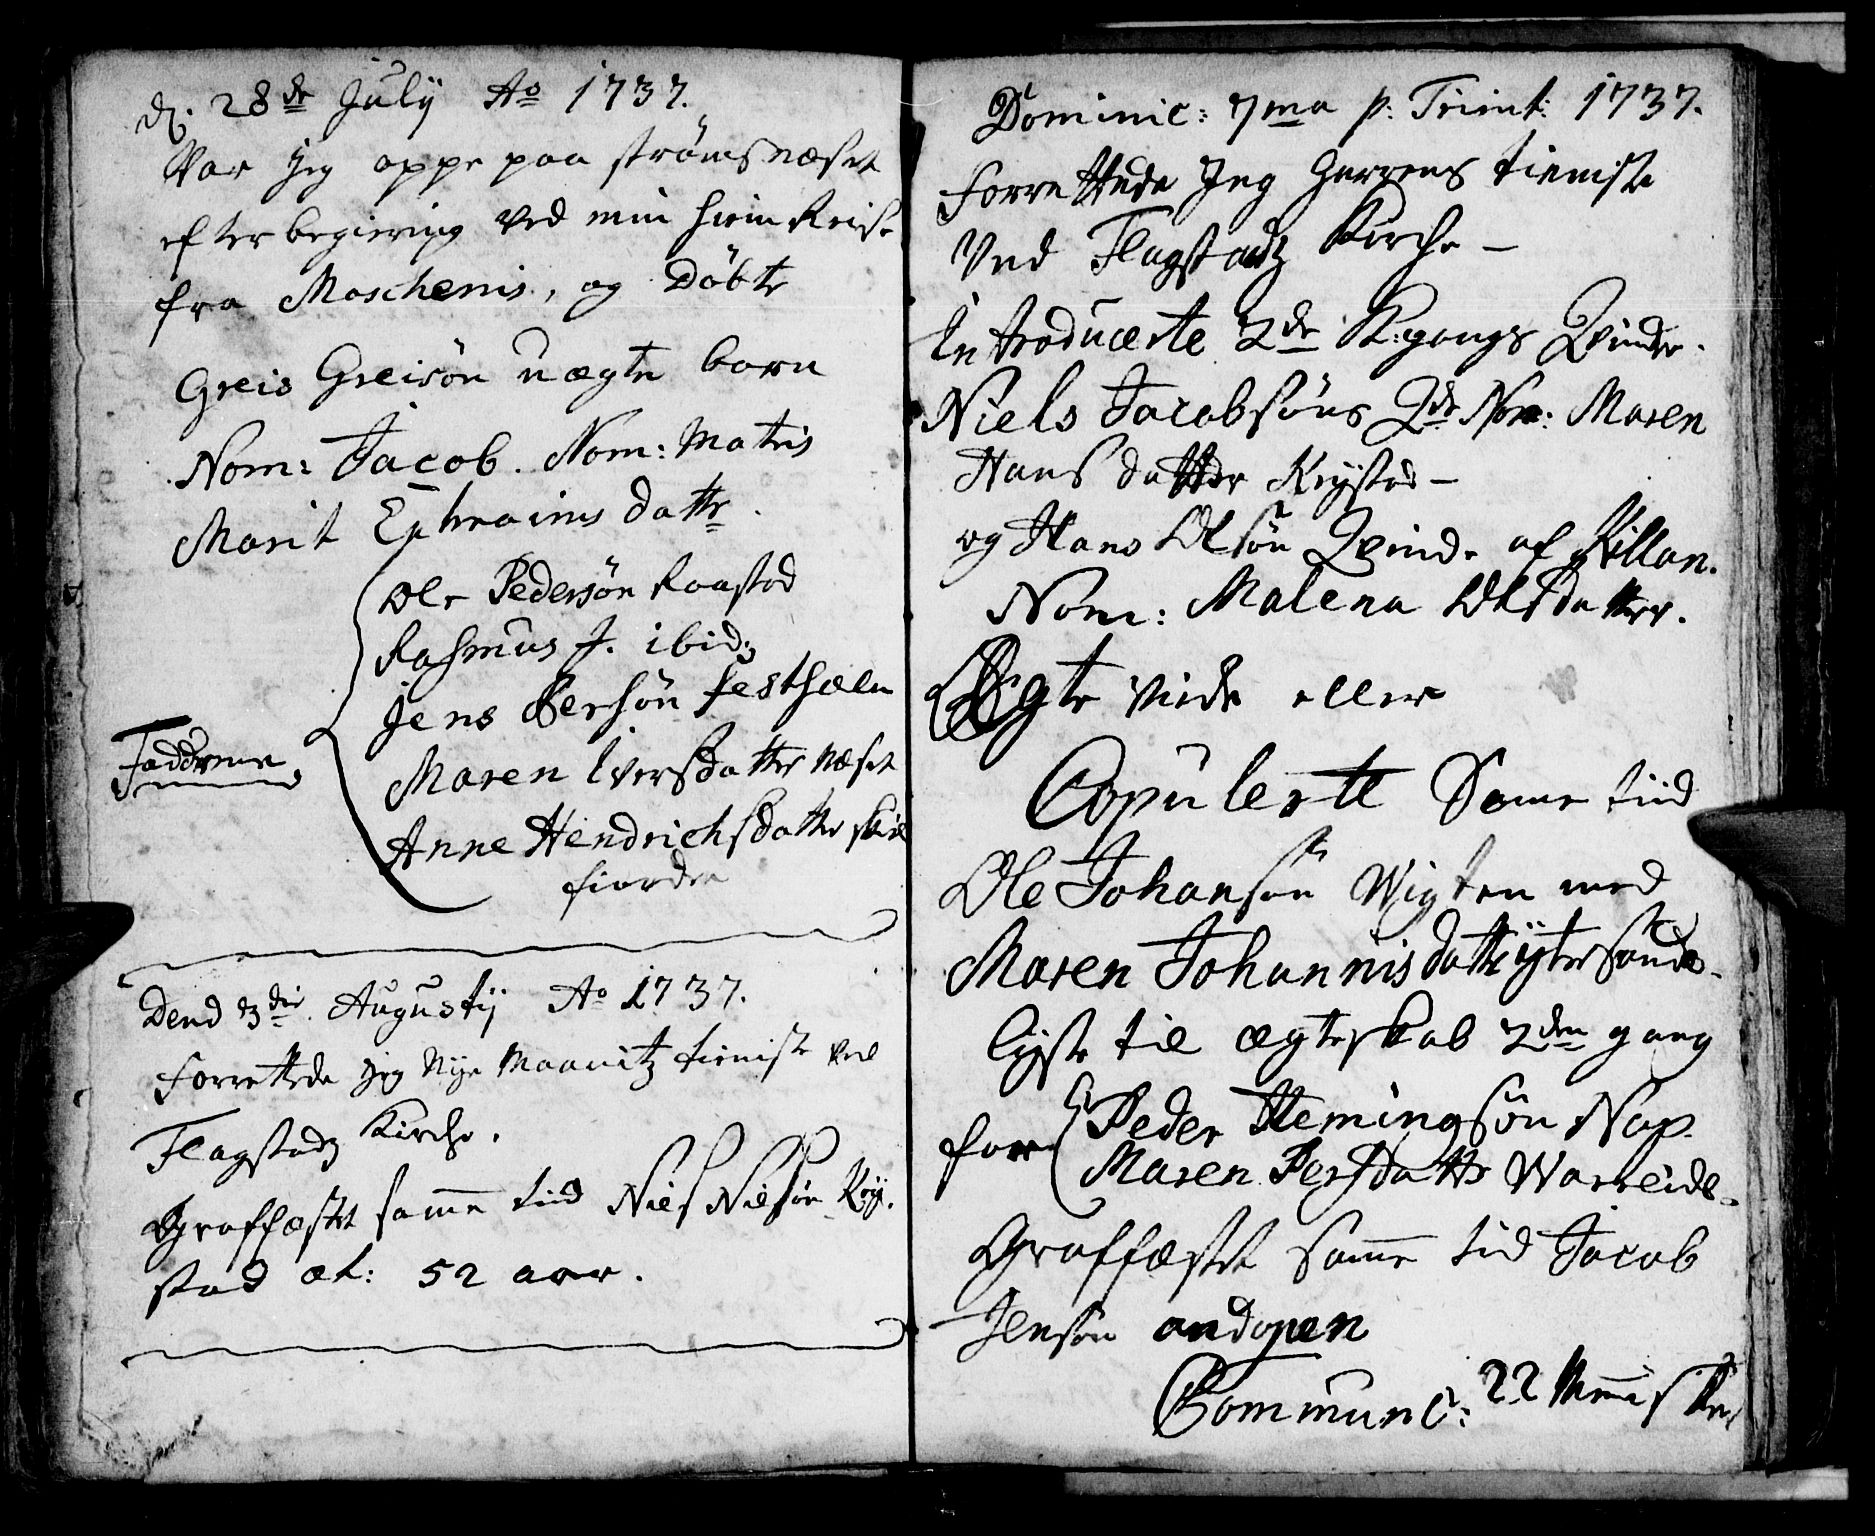 d. 28de July Ao 1737.
War jeg oppe paa strømsnæset
efter begiering ved min hiem Reise
fra Moschenis, og Döbte
Greis Greisøn uægte barn
Nom: Jacob. Nom: Matris
Marit Ephraims datte.
Ole Pedersøn Raastad
Rasmus J. ibid:
Jens Persøn Festhæln
Fadderne
Maren Iversdatter Næset
Anne Hendrichsdatter
fiorden
Dend 3die Augustij Ao 1737.
forrettede jeg Nye Maanitz tieniste ved
Flagstadz Kirche.
Graffæstet samme tiid Niels Nielsøn Kry-
stad æt: 52 aar.
Dominic: 7ma p. Trinit: 1737.
forrettede Jeg Herrens tieniste
Ved Flagstadz Kirche -
Introducerte 2de K:gangs Qvinder.
Niels Jacobsøns Qde Nom: Maren
Hans datter Krystad -
og Hans Olsøn Qvinde af Killan.
Nom: Malena Olsdatter.
Ægte viede eller
Copulerte Same tiid
Ole Johansøn Wigten med
Maren Johannisdatte ytersande.
lyste til ægteskab 2den gang
for
Peder Hemingsøn Nap.
Maren Persdatter Wareide.
Graffæstet samme tid Jacob
Jensøn andopen
Communc: 22 Mennisker